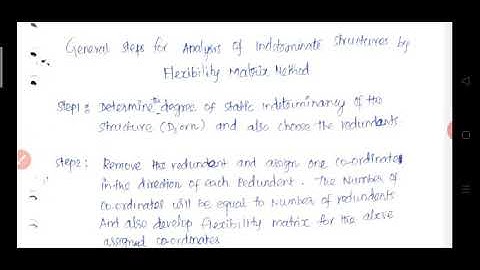 General steps for Analysis of Indeterminate structures by
Flexibility Matrix Method
Step1: Determine the degree of static indeterminancy of the
structure (Ds or n) and also choose the redundants
Step2: Remove the redundant and assign one co-ordinates
in the direction of each Redundent. The Number of
co.ordinates will be equal to Number of redundants
And also develop flexibility matrix for the above
assigned co-ordinates